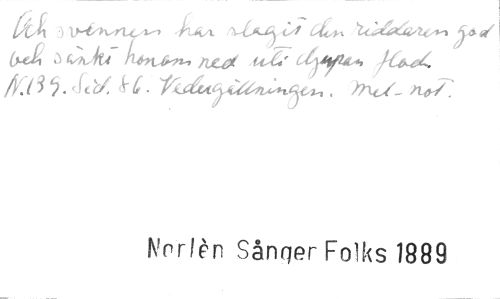 Och svennen har slagit den riddaren god
och sänkt honom ned uti djupan flod.
N.139. Sid. 86. Vedergällningen. Mel-not.
Norlèn Sånger Folks 1889